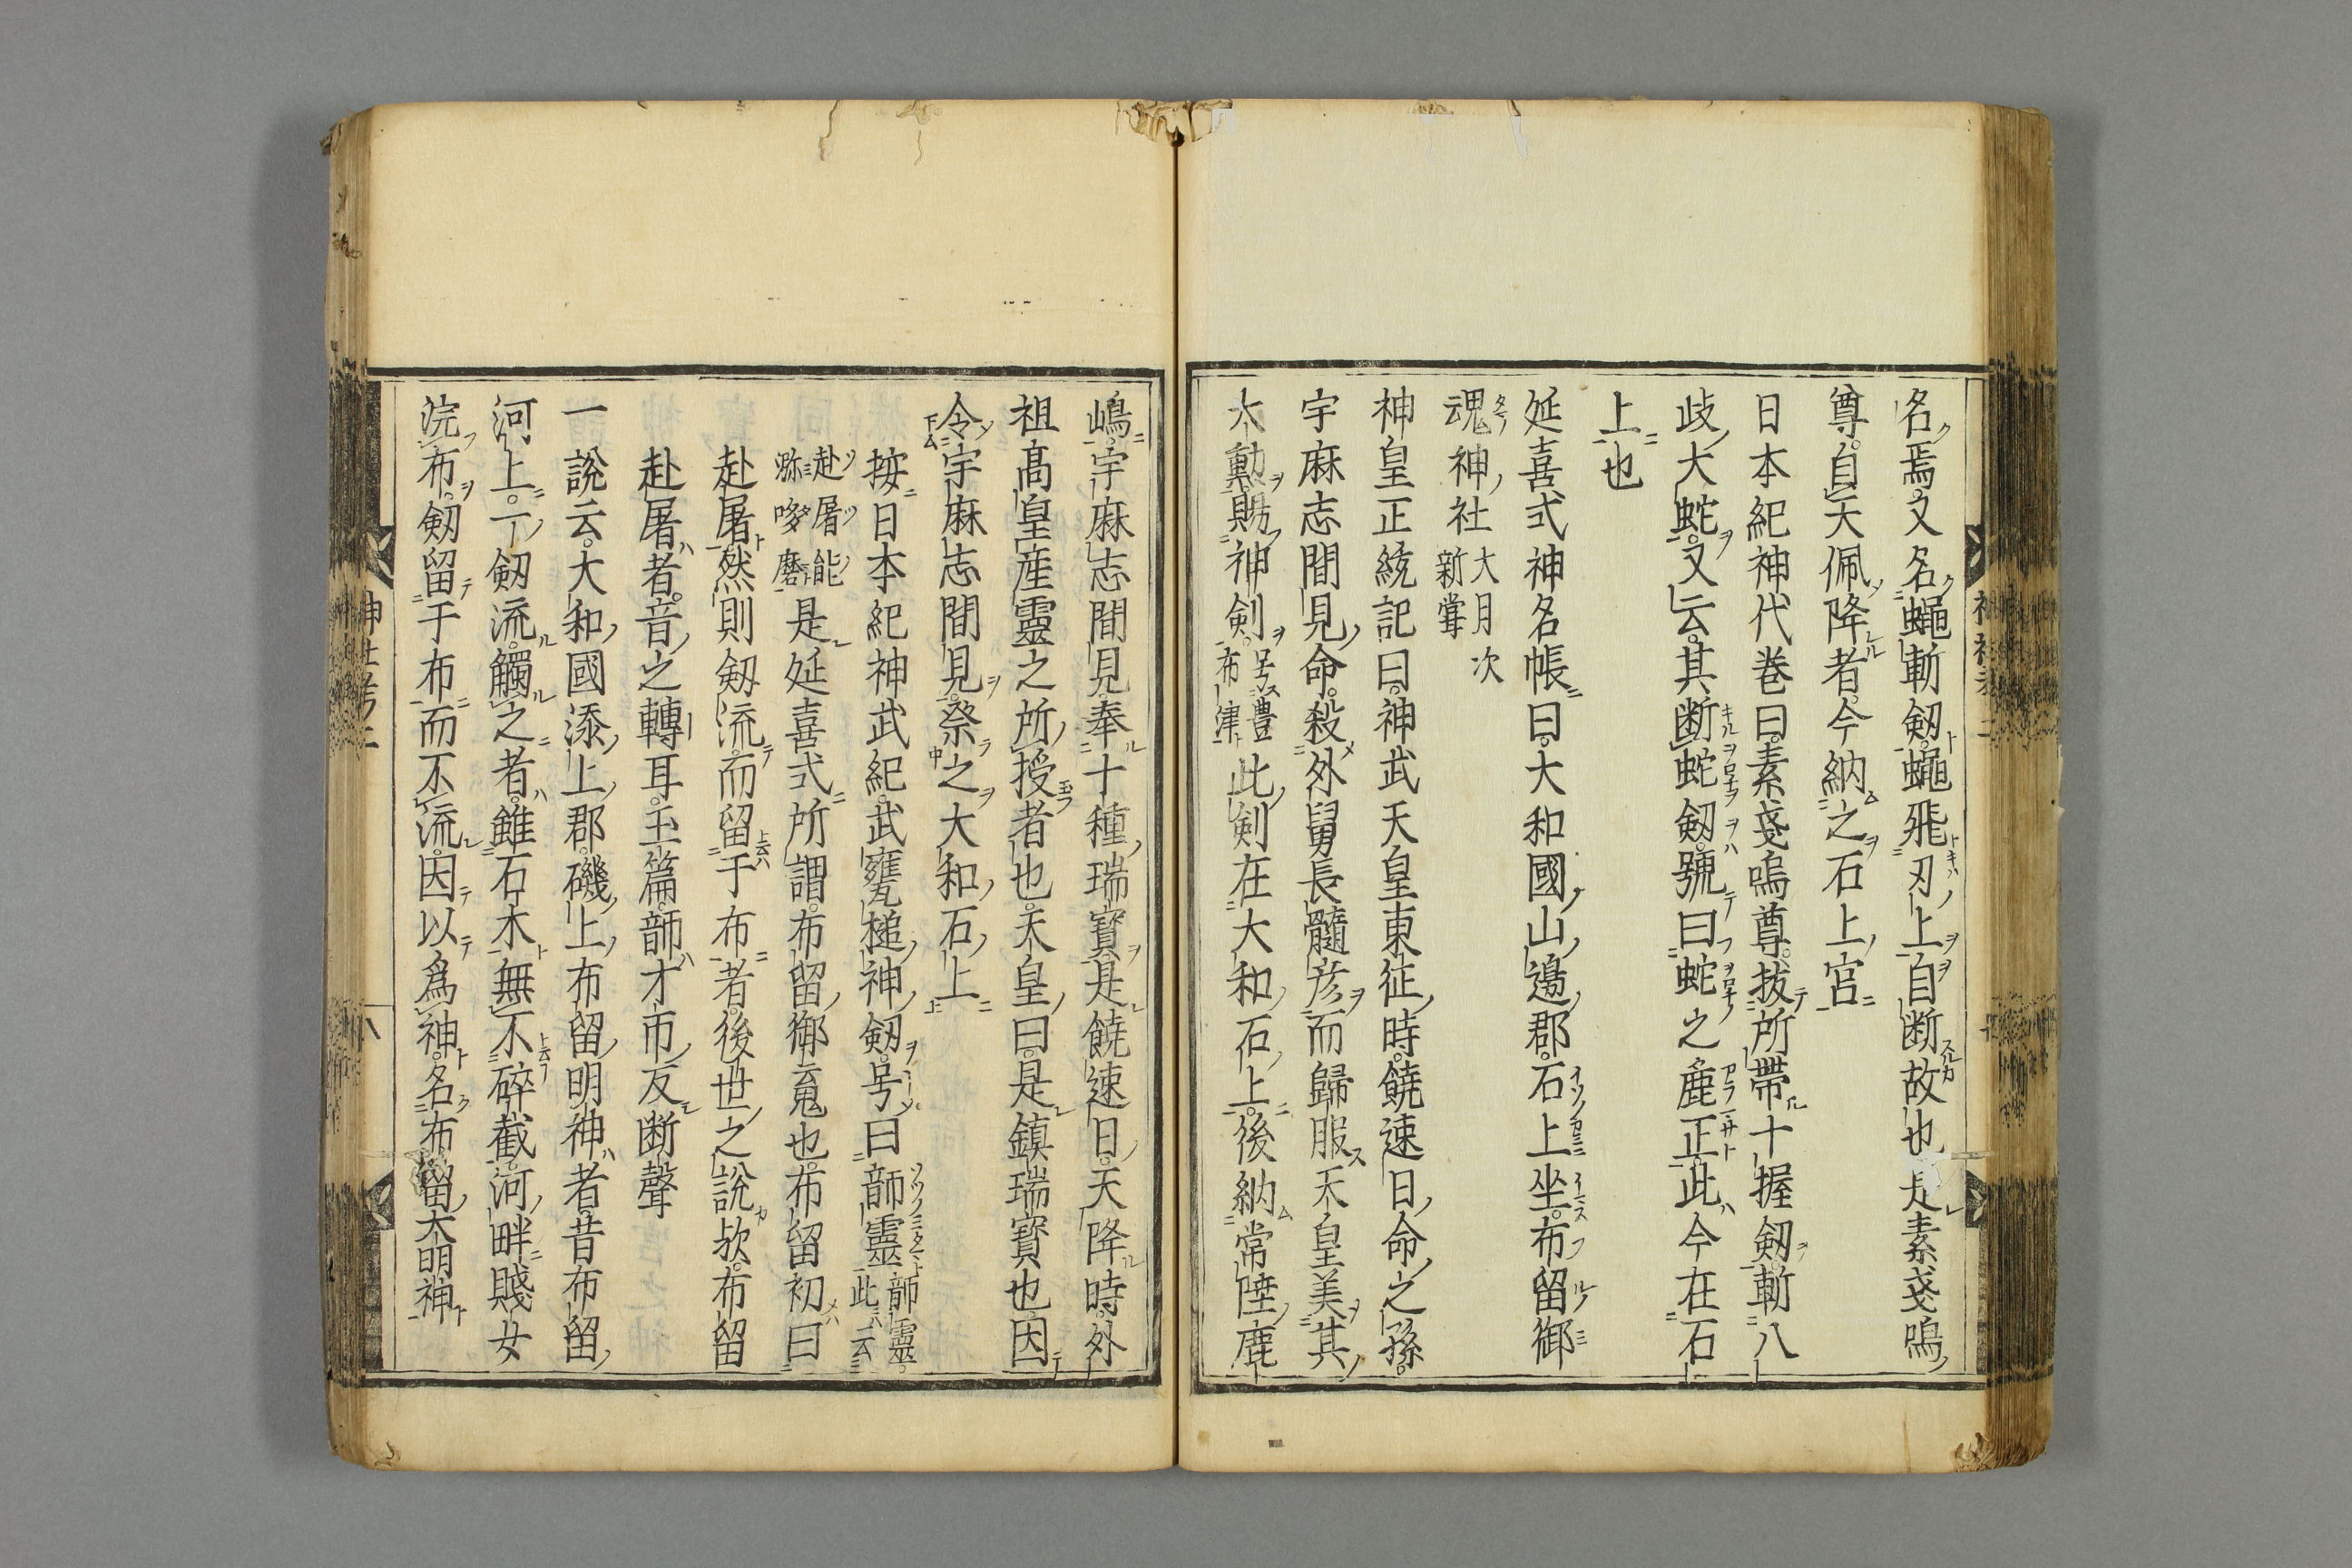 名焉又名蠅斬剱蠅飛刃上自断故也是素戔嗚
尊自天佩降者今納之石上宮
日本紀神代巻曰素戔嗚尊抜所帶十握剱斬八
歧大蛇又云其断蛇剱號曰蛇之麁正此今在石
上也
延喜式神名帳曰大和國山邊郡石上坐布留御
魂神社大月次新嘗
神皇正統記曰神武天皇東征時饒速日命之孫
宇麻志間見命殺外舅長髓彦而歸服天皇美其
大勳賜神剣号豊布津此剣在大和石上後納常陸鹿
嶋宇麻志間見奉十種瑞寶是饒速日天降時外
祖髙皇産靈之所授者也天皇曰是鎮瑞寶也因
令宇麻志間見祭之大和石上
按日本紀神武紀武甕槌神剱号曰韴靈韴靈此云
赴屠能瀰哆磨是延喜式所謂布留御䰟也布留初曰
赴屠然則剱流而留于布者後世之說欤布留
赴屠者音之轉耳玉篇韴才市反断聲
一說云大和國添上郡磯上布留明神者昔布留
河上一剱流觸之者雖石木無不碎截河畔賤女
浣布剱留于布而不流因以爲神名布留大明神
神社考二
八